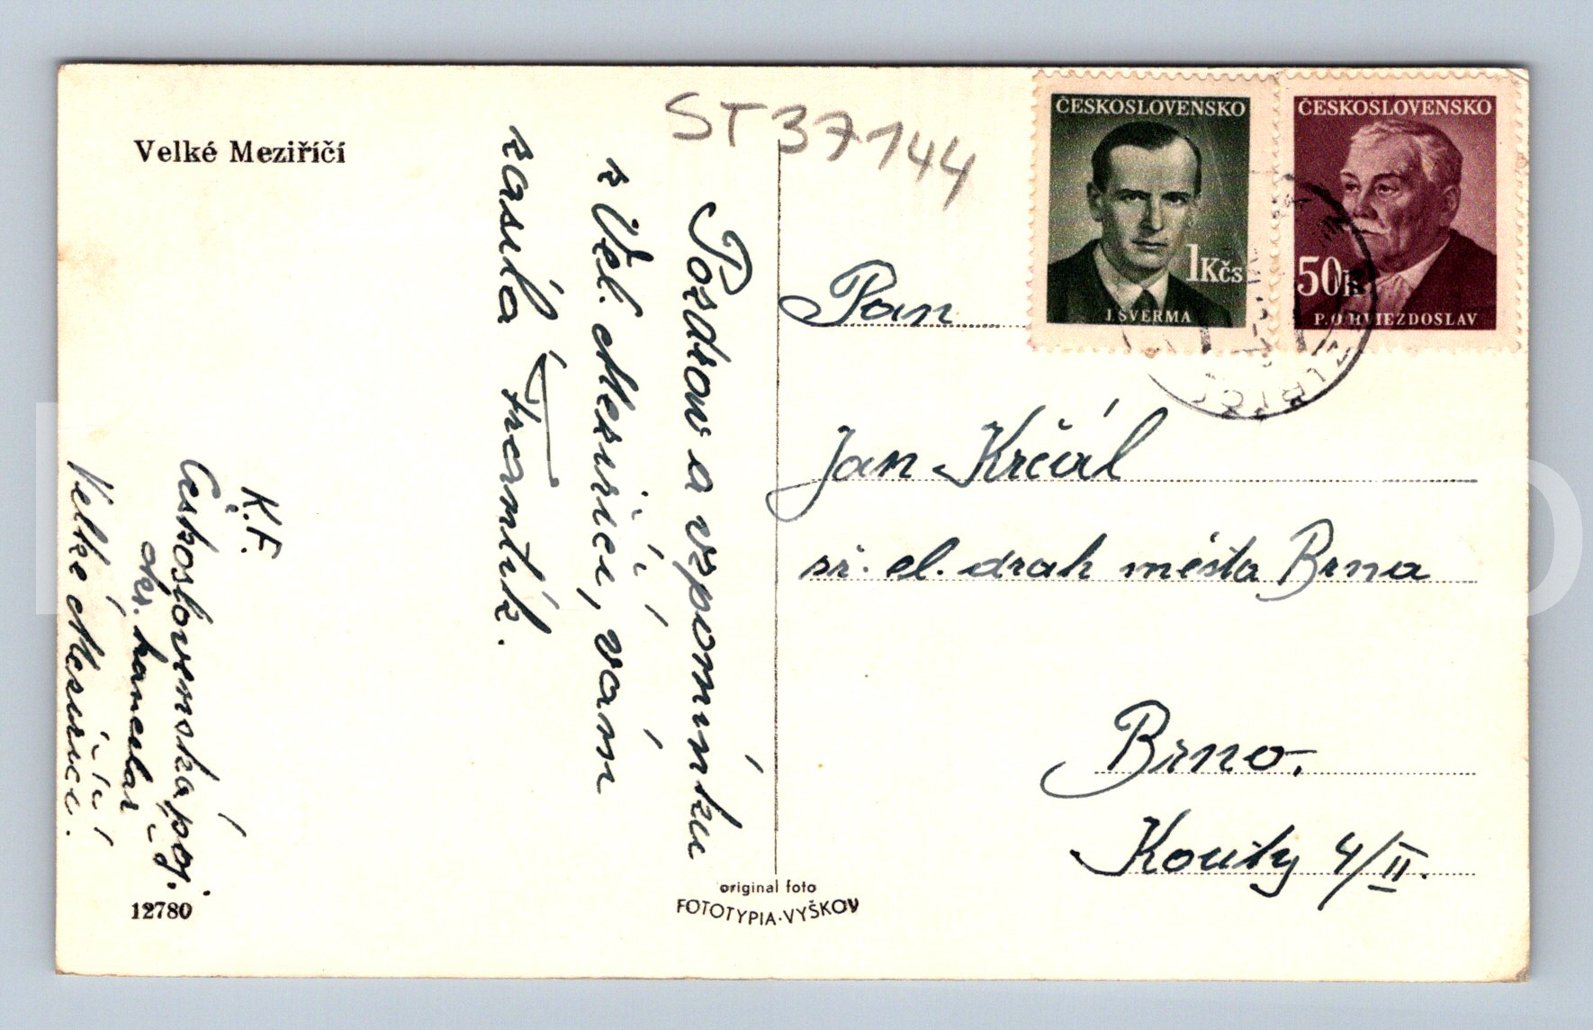 Velké Meziříčí
ST 37144
ČESKOSLOVENSKO
1Kčs
J. ŠVERMA
ČESKOSLOVENSKO
50h
P. O. HVIEZDOSLAV
Pozdrav a vzpomínku
z Vel. Meziříčí, vám
zasílá Frantík.
K. F.
Československá poj.
okr. kancelář
Velké Meziříčí.
Pan
Jan Krčál
zř. el. drah města Brna
Brno.
Kouty 4/II.
12780
original foto
FOTOTYPIA-VYŠKOV